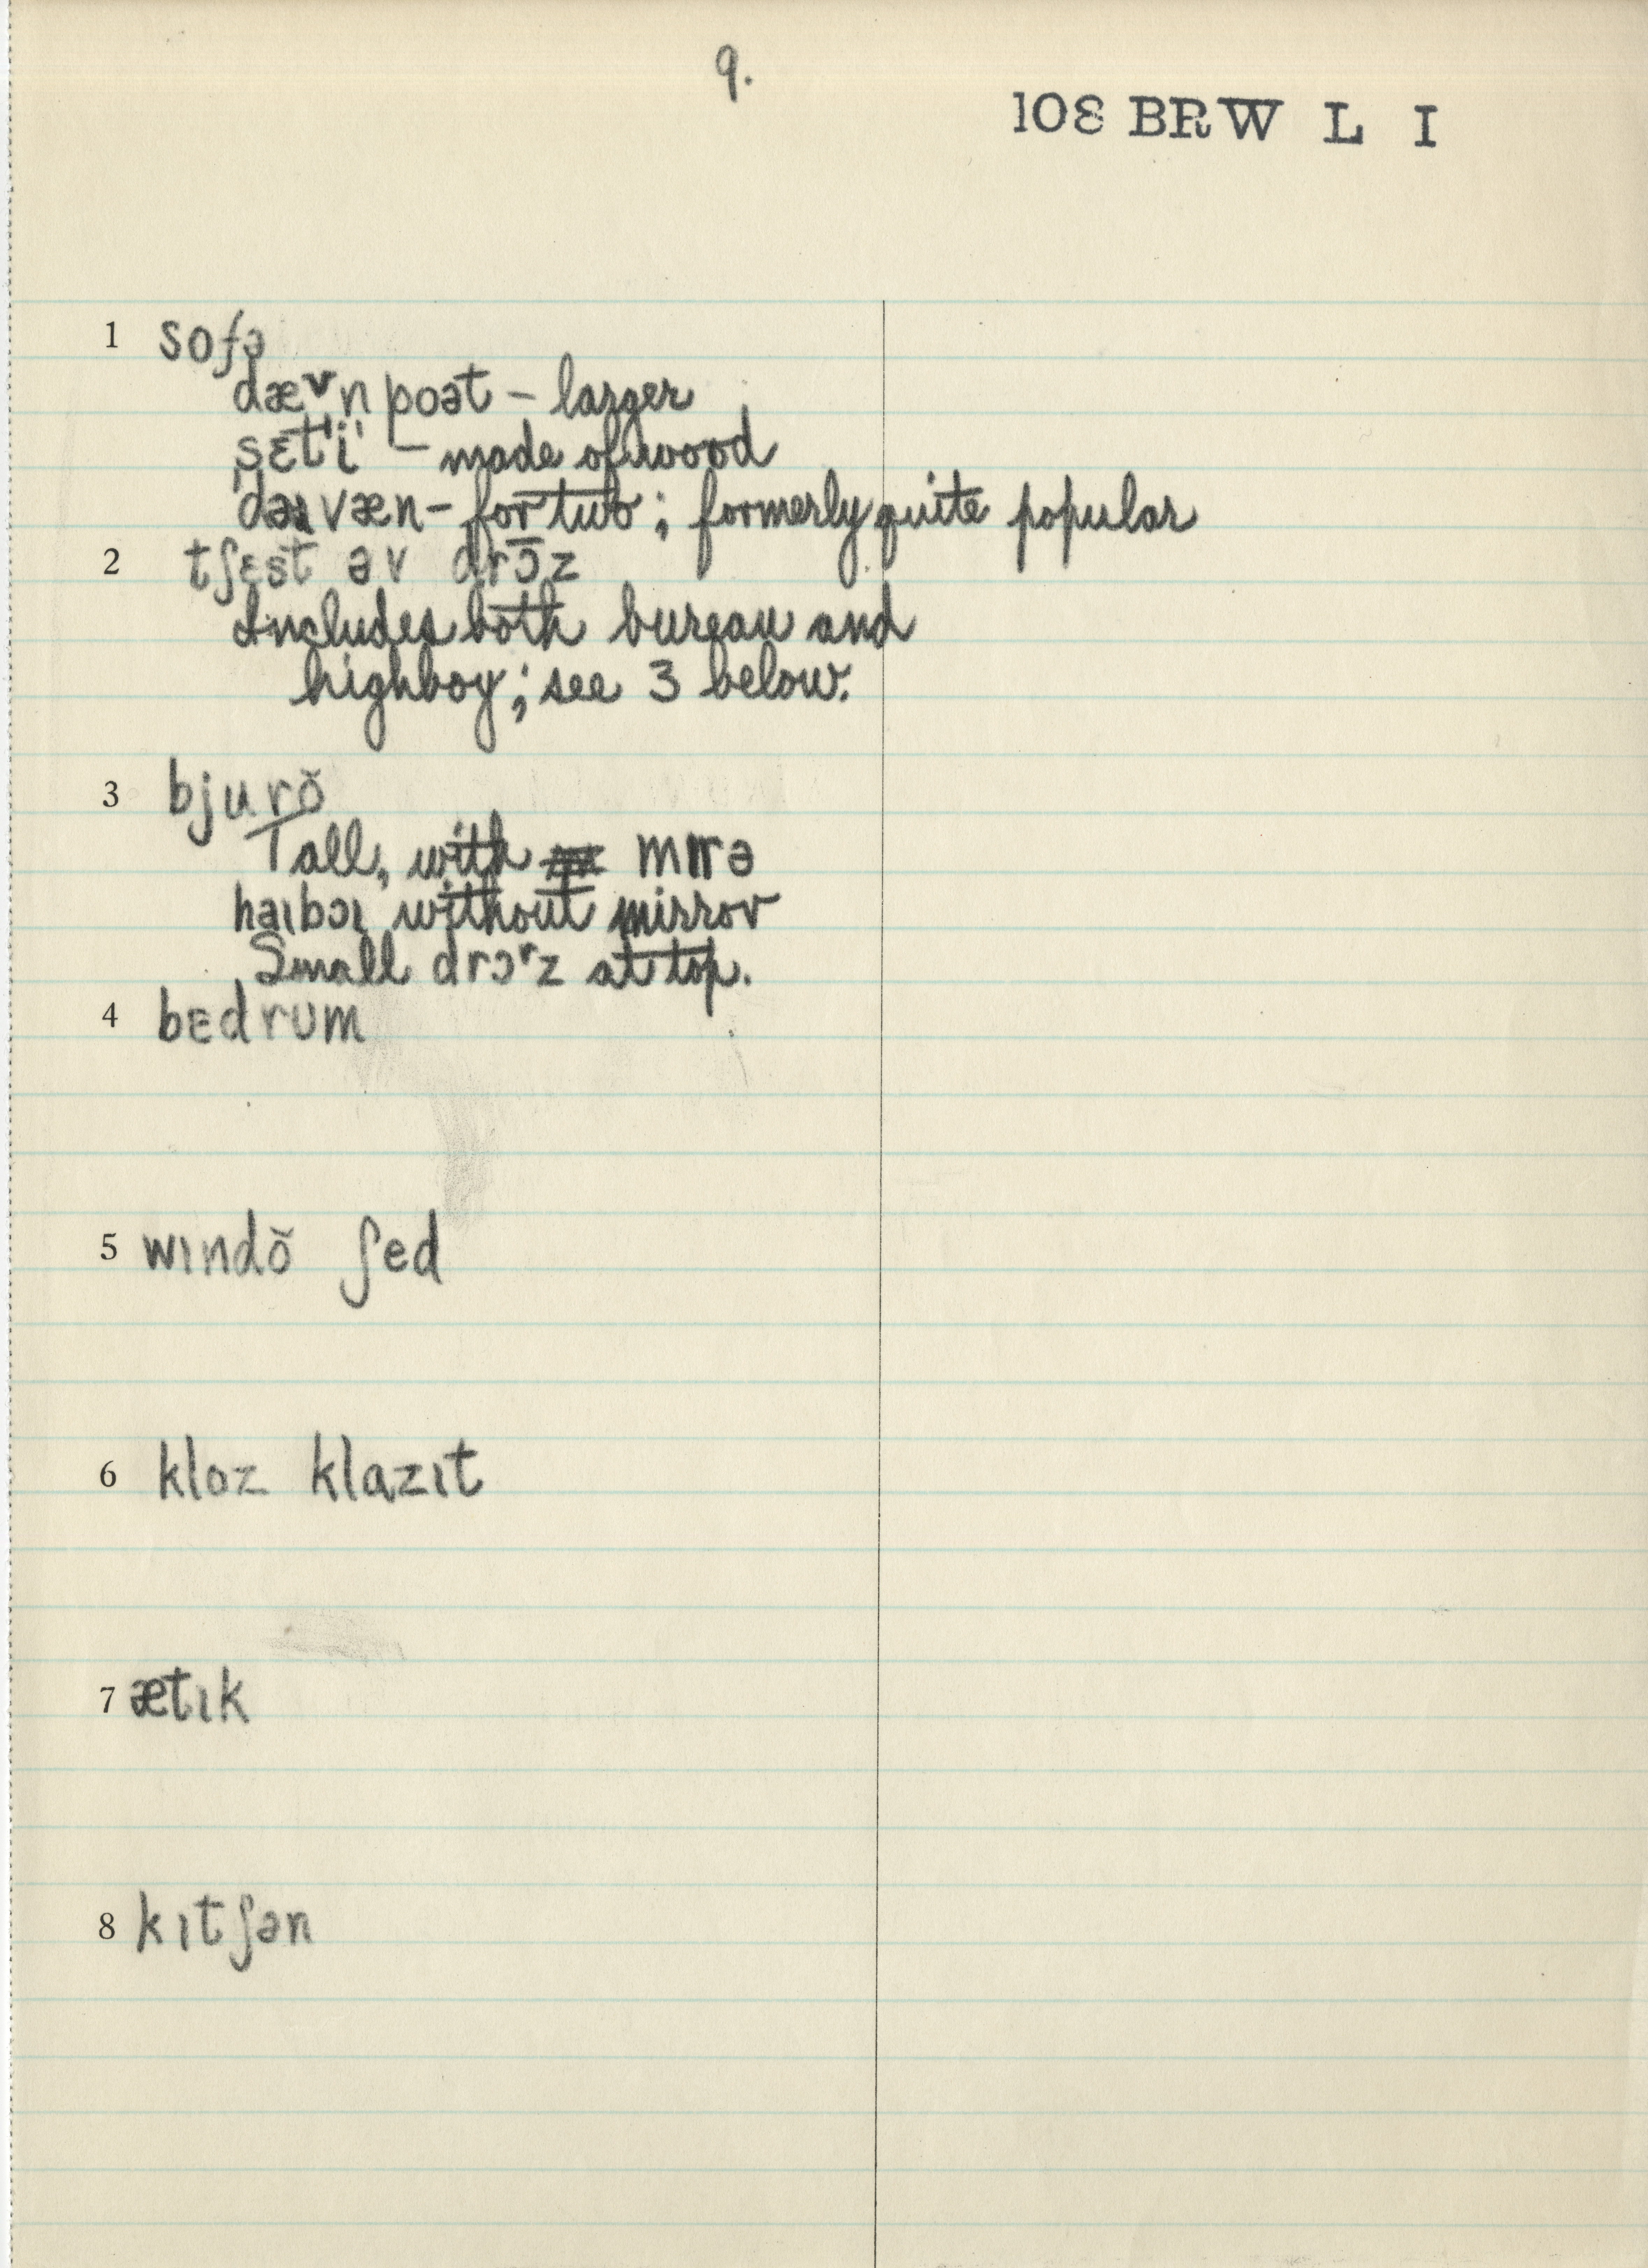 9.
108 BRW L I
1 sofə
dævn poət – larger
sɛt'i' – made of wood
daɪvæn – for two; formerly quite popular
2 tʃɛst əv drɔ̄z
Includes both bureau and
highboy; see 3 below.
3 bjurŏ
Tall, with mɪrə
haɪbɔɪ without mirror
Small drɔʳz at top.
4 bɛdrum
5 wɪndŏ ʃed
6 kloz klazɪt
7 ætɪk
8 kɪtʃən